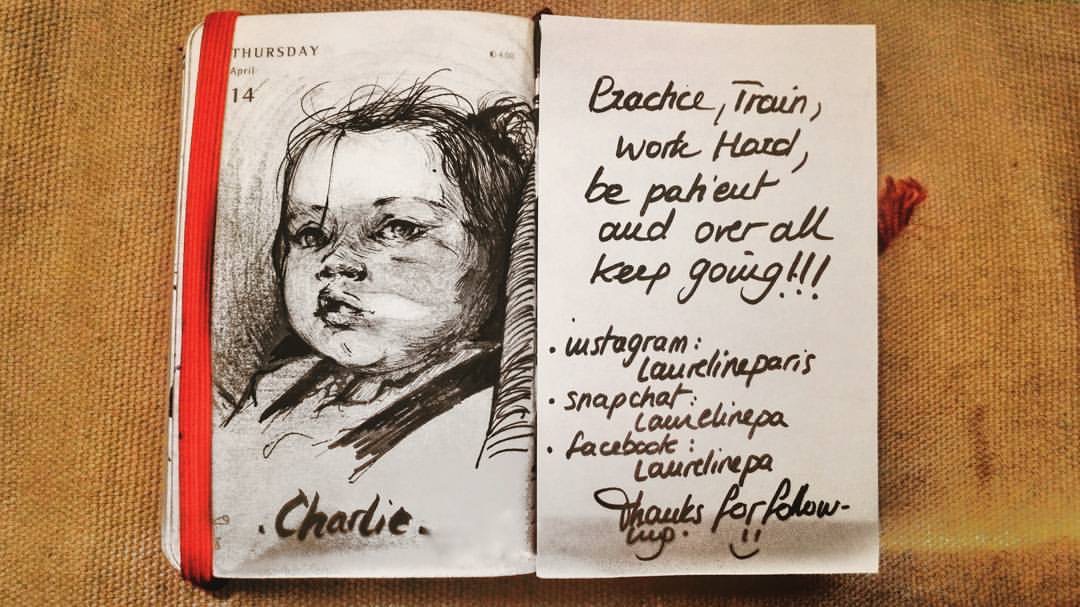 THURSDAY
April
14
4.00
. Charlie .
Practice, Train,
work Hard,
be patient
and over all
keep going!!!
. instagram:
Laurelineparis
. snapchat:
Laurelinepa
. facebook:
Laurelinepa
Thanks for follow-
ing.